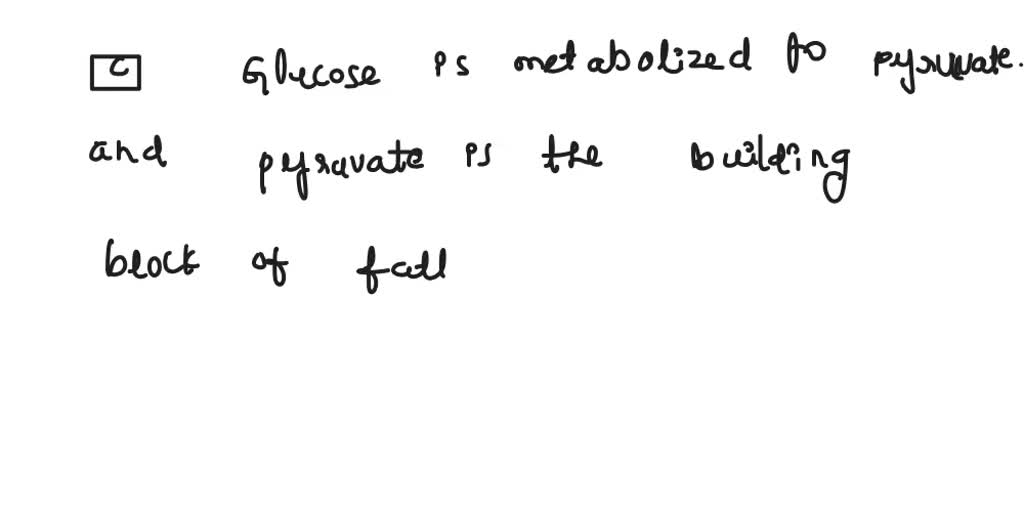 C Glucose is metabolized to pyruvate.
and pyruvate is the building
block of fall